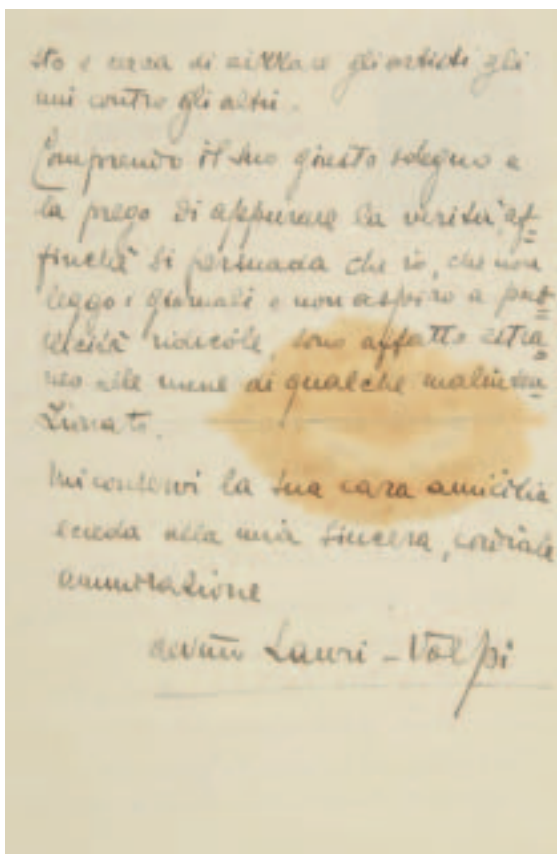 sto e cerca di aizzare gli artisti gli
uni contro gli altri.
Comprendo il suo giusto sdegno e
la prego di appurare la verità, af=
finché si persuada che io, che non
leggo i giornali e non aspiro a pub=
blicità ridicole, sono affatto estra=
neo alle mene di qualche malinten
zionato.
Mi conservi la sua cara amicizia
e creda nella mia sincera, cordiale
ammirazione
Lauri-Volpi